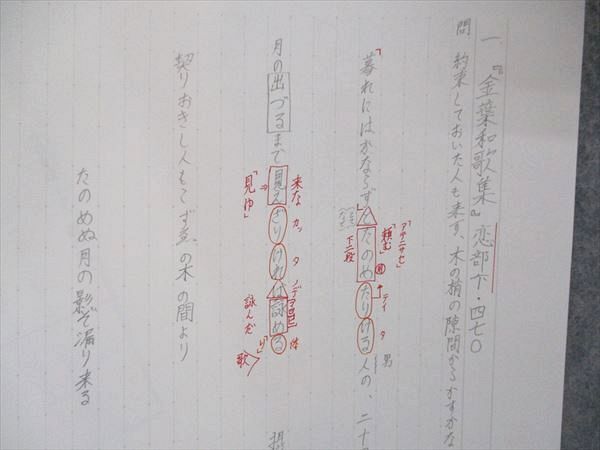 一 『金葉和歌集』恋部下・四七〇
問 約束しておいた人も来ず、木の梢の隙間からかすかな
「アテニサセ」
「頼む」
下二段
テイ タ
「暮れにはかならずとたのめたりける人の、二十
男
来な カッ タ ノデ
月の出づるまで見えざりければ詠める
「見ゆ」
詠んだ 歌
り 体
契りおきし人もこずゑの木の間より
たのめぬ月の影ぞ漏り来る